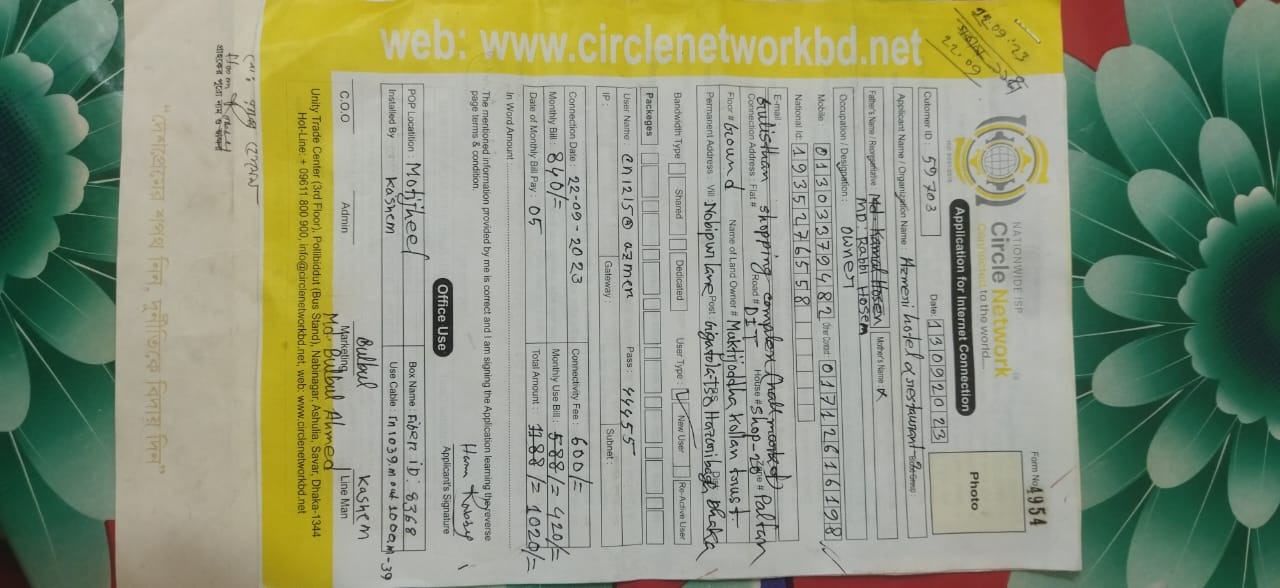 22.09.23
22.09
Form No: 4954
NATIONWIDE ISP
Circle Network
Connected to the world....
Application for Internet Connection
Photo
Cutomer ID : 59703
Date: 13092023
Applicant Name / Organization Name : Azmeri hotel & restaurant
Father's Name / Reprsentative : Md. Kamal Hosen Mother's Name :
MD: Rabbi Hosem
Occupation / Designation : owner
Mobile: 01303379482 Other Contact : 01712616198
National Id : 1935276558
E-mail :
Gulisthan shopping complex
Connection Address : Flat # Road # DIT House # Shop-20 Zone # Paltan
Floor # Ground Name of Land Owner # Muktijoddha Kolan trust
Permanent Address : Vill Nobipur lane Post Gigatola Hazaribagh Dhaka
Bandwidth Type Shared Dedicated User Type : New User Re-Active User
Packages
User Name : cn1215@azmeri Pass : 44455
IP : Gateway : Subnet :
Connection Date : 22-09-2023 Connectivity Fee : 600/=
Monthly Bill : 840/= Monthly Use Bill : 588/= 420/=
Date of Monthly Bill Pay : 05 Total Amount : 1188/= 1020/=
In Word Amount :
The mentioned information provided by me is correct and I am signing the Application learning the reverse
page terms & condition.
Applicant's Signature
Office Use
POP Location : Motijheel Box Name : Fiber ID: 8368
Installed By : Kashem Use Cable :
Bulbul Kashem
C.O.O Admin Marketing Line Man
Md. Bulbul Ahmed
Unity Trade Center (3rd Floor), Pollibiddut (Bus Stand), Nabinagar, Ashulia, Savar, Dhaka-1344
Hot-Line: + 09611 800 900, info@circlenetworkbd.net, web: www.circlenetworkbd.net
web: www.circlenetworkbd.net
"দেশপ্রেমের শপথ নিন, দুর্নীতিকে বিদায় দিন"